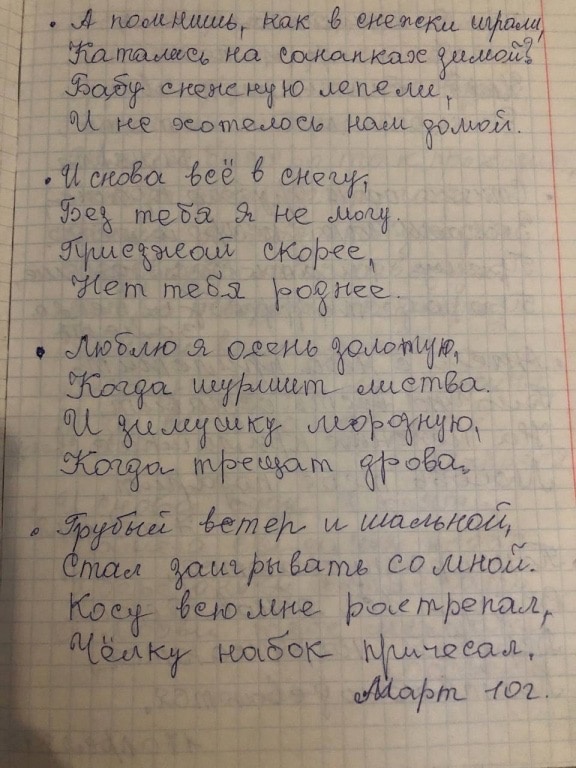 • А помнишь, как в снежки играли,
Катались на санапках зимой?
Бабу снежную лепели,
И не хотелось нам домой.
• И снова всё в снегу,
Без тебя я не могу.
Приезжай скорее,
Нет тебя роднее.
• Люблю я осень золотую,
Когда шуршит листва.
И зимушку морозную,
Когда трещат дрова.
• Грубый ветер и шальной,
Стал заигрывать со мной.
Косу всю мне растрепал,
Чёлку набок причесал.
Март 10г.